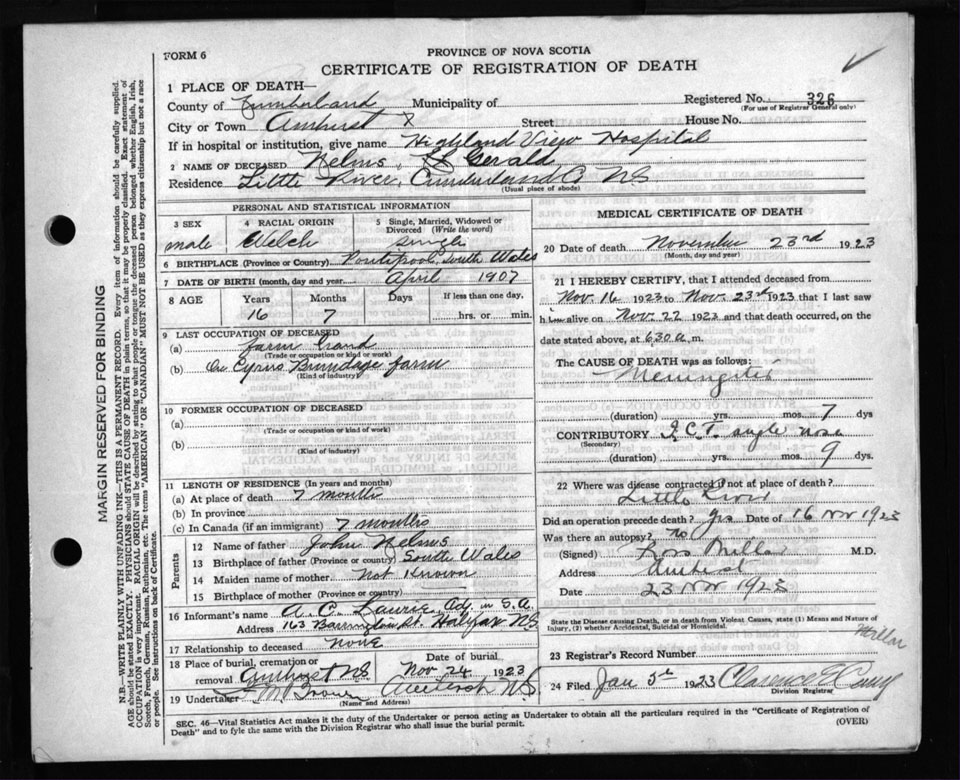 FORM 6
PROVINCE OF NOVA SCOTIA
CERTIFICATE OF REGISTRATION OF DEATH
1 PLACE OF DEATH—
County of Cumberland Municipality of
Registered No. 326
(For use of Registrar General only)
City or Town Amherst Street House No.
If in hospital or institution, give name Highland View Hospital
2 NAME OF DECEASED Nelms, Gerald
Residence Little River, Cumberland Co NS
(Usual place of abode)
PERSONAL AND STATISTICAL INFORMATION
3 SEX male
4 RACIAL ORIGIN Welch
5 Single, Married, Widowed or Divorced (Write the word) Single
6 BIRTHPLACE (Province or Country) South Wales
7 DATE OF BIRTH (month, day and year) April 1907
8 AGE Years Months Days If less than one day,
16 7 hrs. or min.
9 LAST OCCUPATION OF DECEASED
(a) farm hand
(Trade or occupation or kind or work)
(b) On Cyrus Brundage farm
(Kind of industry)
10 FORMER OCCUPATION OF DECEASED
(a)
(Trade or occupation or kind of work)
(b)
(Kind of industry)
11 LENGTH OF RESIDENCE (In years and months)
(a) At place of death 7 months
(b) In province
(c) In Canada (if an immigrant) 7 months
Parents
12 Name of father John Nelms
13 Birthplace of father (Province or country) South Wales
14 Maiden name of mother Not Known
15 Birthplace of mother (Province or country)
16 Informant's name A. C. Laurie, Adj. in S.A.
Address 163 Barrington St. Halifax NS
17 Relationship to deceased None
18 Place of burial, cremation or removal Amherst NS
Date of burial Nov 24 1923
19 Undertaker NS
(Name and Address)
MEDICAL CERTIFICATE OF DEATH
20 Date of death November 23rd 1923
(Month, day and year)
21 I HEREBY CERTIFY, that I attended deceased from
Nov. 16 1923 to Nov. 23rd 1923 that I last saw
him alive on Nov. 22 1923 and that death occurred, on
date stated above, at 6 30 a m.
The CAUSE OF DEATH was as follows:
Meningitis
(duration) yrs. mos. 7 dys
CONTRIBUTORY nose
(Secondary)
(duration) yrs. mos. 9 dys.
22 Where was disease contracted if not at place of death?
Little River
Did an operation precede death? yes Date of 16 Nov 1923
Was there an autopsy? No
(Signed) Ross Millar M.D.
Address Amherst
Date 23 Nov 1923
State the Disease causing Death, or in death from Violent Causes, state (1) Means and Nature of
Injury, (2) whether Accidental, Suicidal or Homicidal.
Millar
23 Registrar's Record Number
24 Filed Jan 5th 1923 Clarence
Division Registrar
SEC. 46—Vital Statistics Act makes it the duty of the Undertaker or person acting as Undertaker to obtain all the particulars required in the "Certificate of Registration of
Death" and to fyle the same with the Division Registrar who shall issue the burial permit.
(OVER)
MARGIN RESERVED FOR BINDING
N.B.—WRITE PLAINLY WITH UNFADING INK—THIS IS A PERMANENT RECORD. Every item of information should be carefully supplied.
AGE should be stated EXACTLY. PHYSICIANS should STATE CAUSE OF DEATH in plain terms, so that it may be properly classified. Exact statement of
OCCUPATION is very important. RACIAL ORIGIN will be described by stating to what people or tongue the deceased person belonged whether English, Irish,
Scotch, French, German, Russian, Ruthenian, etc. The terms "AMERICAN" OR "CANADIAN" MUST NOT BE USED as they express citizenship but not a race
or people. See instructions on back of Certificate.